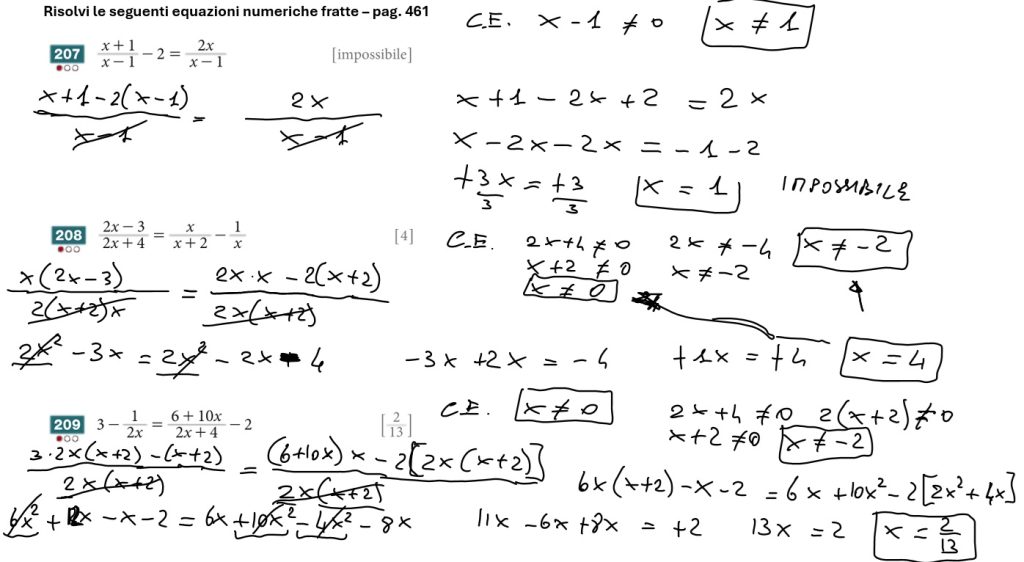 Risolvi le seguenti equazioni numeriche fratte – pag. 461
C.E. x - 1 ≠ 0 x ≠ 1
207 (x+1)/(x−1) − 2 = 2x/(x−1) [impossibile]
(x+1-2(x-1))/(x-1) = 2x/(x-1)
x + 1 - 2x + 2 = 2x
x - 2x - 2x = -1 - 2
+3x/3 = +3/3 x = 1 IMPOSSIBILE
208 (2x−3)/(2x+4) = x/(x+2) − 1/x [4]
C.E. 2x+4 ≠ 0 2x ≠ -4 x ≠ -2
x+2 ≠ 0 x ≠ -2
x ≠ 0
x(2x-3)/(2(x+2)x) = (2x·x - 2(x+2))/(2x(x+2))
2x² - 3x = 2x² - 2x - 4 -3x + 2x = -4 +1x = +4 x = 4
209 3 − 1/(2x) = (6+10x)/(2x+4) − 2 [2/13]
C.E. x ≠ 0 2x+4 ≠ 0 2(x+2) ≠ 0
x+2 ≠ 0 x ≠ -2
(3·2x(x+2) - (x+2))/(2x(x+2)) = ((6+10x)x - 2[2x(x+2)])/(2x(x+2))
6x(x+2) - x - 2 = 6x + 10x² - 2[2x²+4x]
6x² + 12x - x - 2 = 6x + 10x² - 4x² - 8x 11x - 6x + 8x = +2 13x = 2 x = 2/13